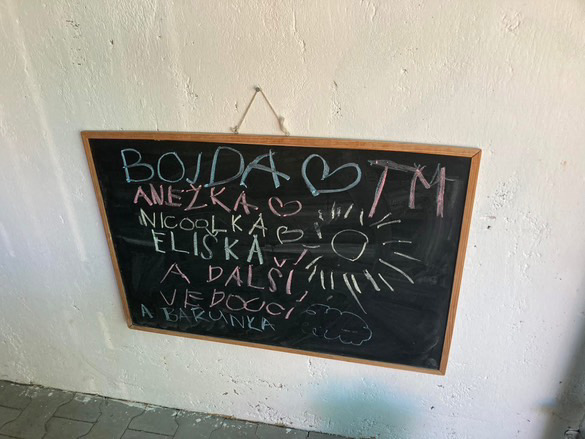 BOJĎA TM
ANEŽKA
NICOLKA
ELIŠKA
A DALŠÍ
VEDOUCÍ
A BARUNKA